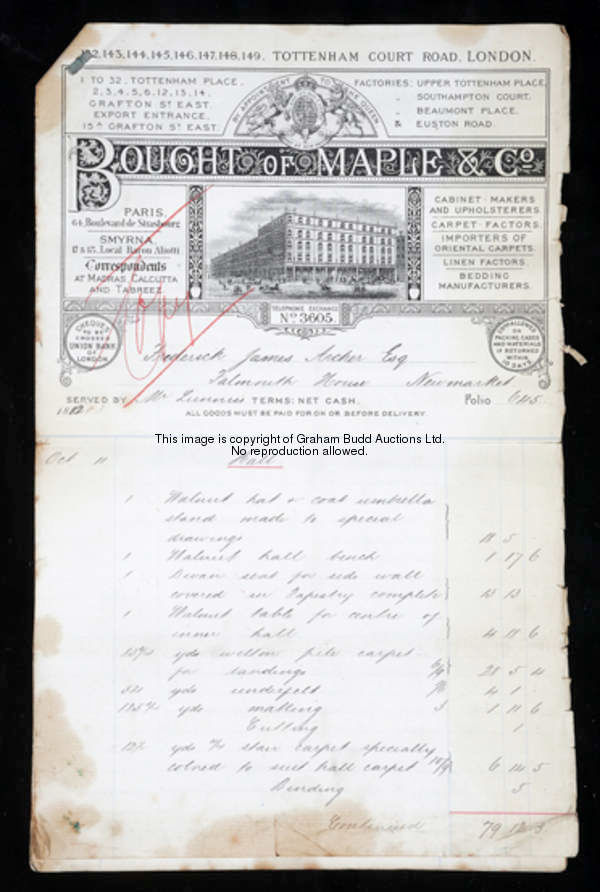 142,143,144,145,146,147,148,149, TOTTENHAM COURT ROAD, LONDON.
1 TO 32, TOTTENHAM PLACE,
2,3,4,5,6,12,13,14,
GRAFTON ST EAST,
EXPORT ENTRANCE,
15A GRAFTON ST EAST.
BY APPOINTMENT TO THE QUEEN
FACTORIES: UPPER TOTTENHAM PLACE,
" SOUTHAMPTON COURT,
" BEAUMONT PLACE,
& EUSTON ROAD.
BOUGHT OF MAPLE & Co
PARIS,
64, Boulevard de Strasbourg
SMYRNA,
Local Baron Aliotti
Correspondents
AT MADRAS, CALCUTTA
AND TABREEZ
Copy
CABINET-MAKERS
AND UPHOLSTERERS.
CARPET-FACTORS.
IMPORTERS OF
ORIENTAL CARPETS.
LINEN FACTORS.
BEDDING
MANUFACTURERS.
TELEPHONE EXCHANGE
No 3605.
CHEQUES
TO BE
CROSSED
UNION BANK
OF
LONDON.
£ ALLOWED
ON
PACKING CASES
AND MATERIALS
IF RETURNED
WITHIN
10 DAYS
Frederick James Archer Esq
Falmouth House Newmarket
SERVED BY Mr TERMS: NET CASH. Folio 645
188
ALL GOODS MUST BE PAID FOR ON OR BEFORE DELIVERY.
This image is copyright of Graham Budd Auctions Ltd.
No reproduction allowed.
Oct 11 Hall
1 Walnut hat & coat umbrella
stand made to special
drawings 18 5 -
1 Walnut hall bench 1 17 6
1 Divan seat for side wall
covered in Tapestry complete 13 13
1 Walnut table for centre of
inner hall 4 11 6
yds wilton pile carpet
for landings 28 5 4
yds underfelt 4 1
yds matting 1 11 6
Cutting 1
yds stair carpet specially
colored to suit hall carpet 6 14 5
Binding 5
Continued 79 12 3